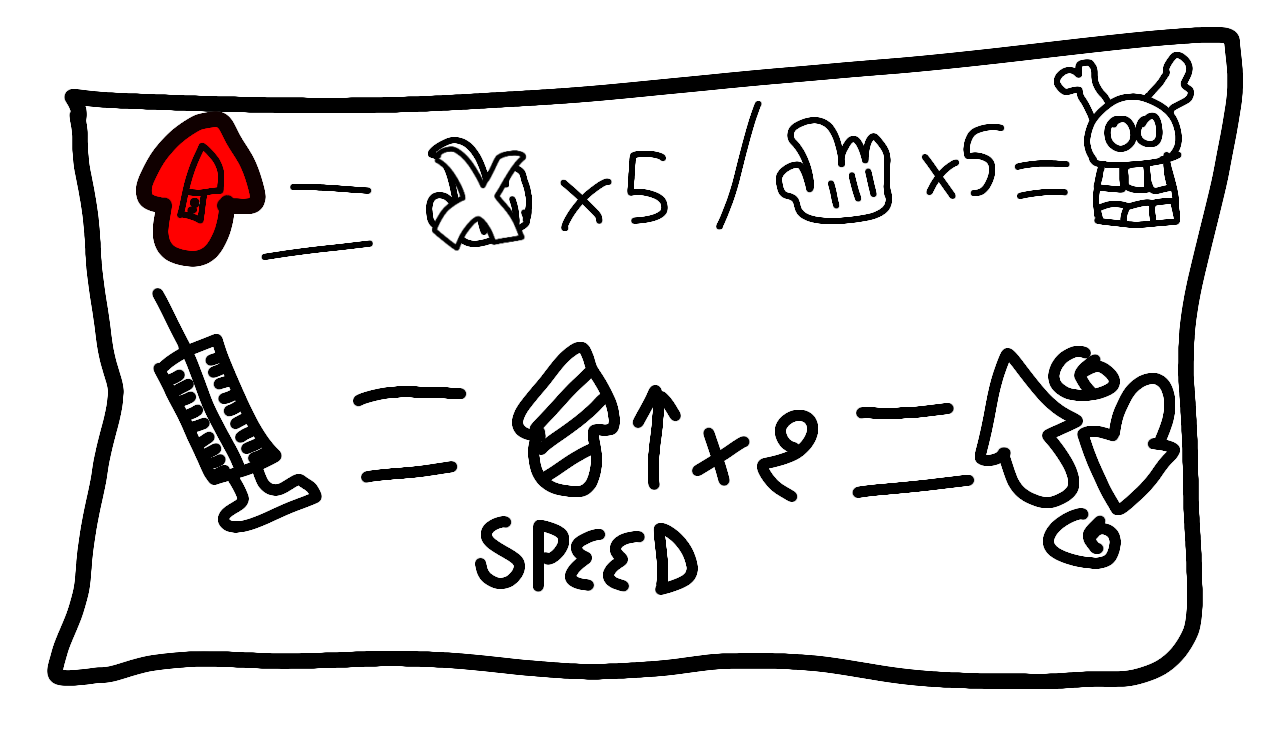 = x5 / x5 =
= ↑ x2 =
SPEED